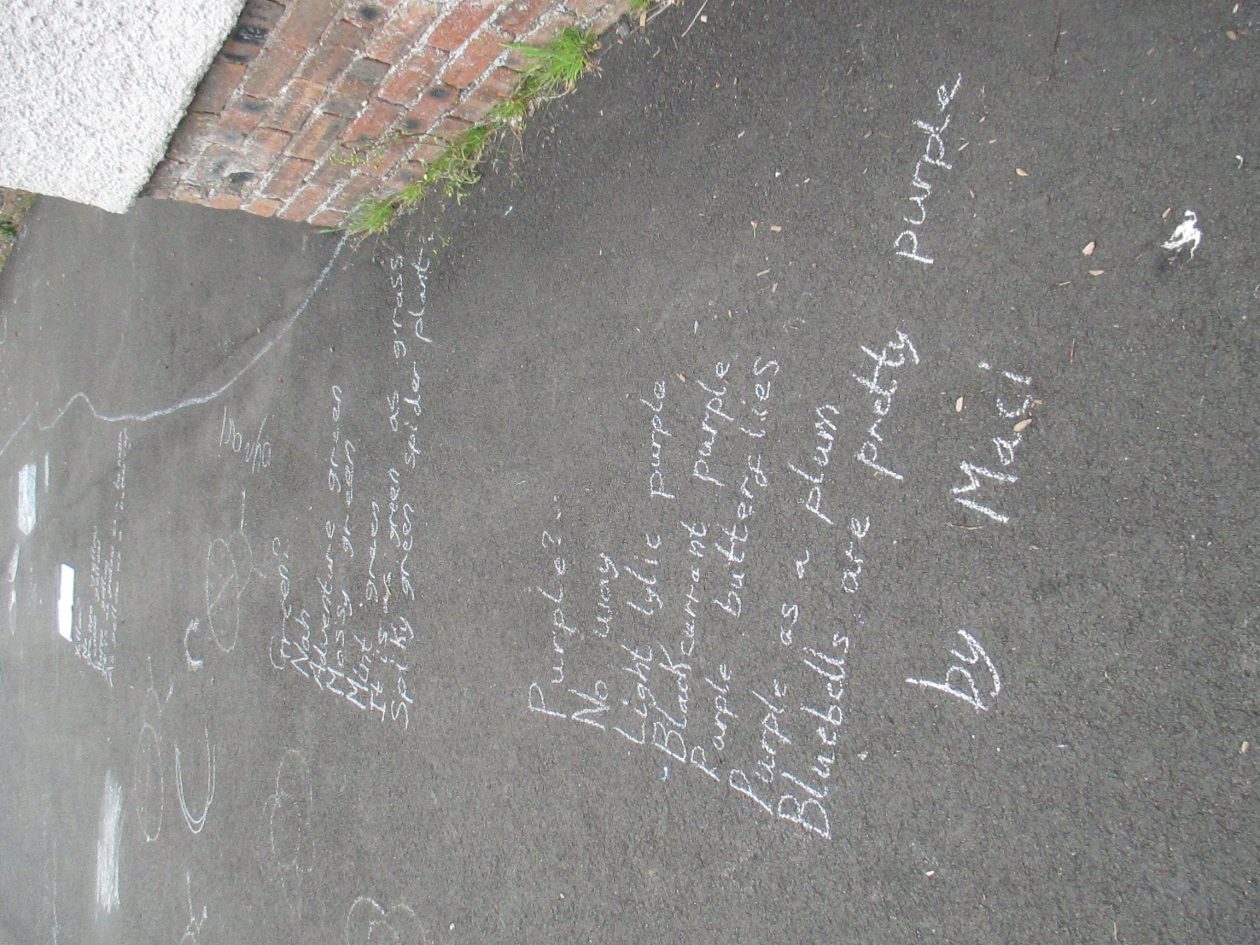 Purple?
No way
Light lylic purple
Blackcurrant purple
Purple butterflies
Purple as a plum
Bluebells are pretty purple
by Masi
Green?
Nah
Adventure green
Mossy green
Mint green
It is as green as grass
Spiky green spider plant